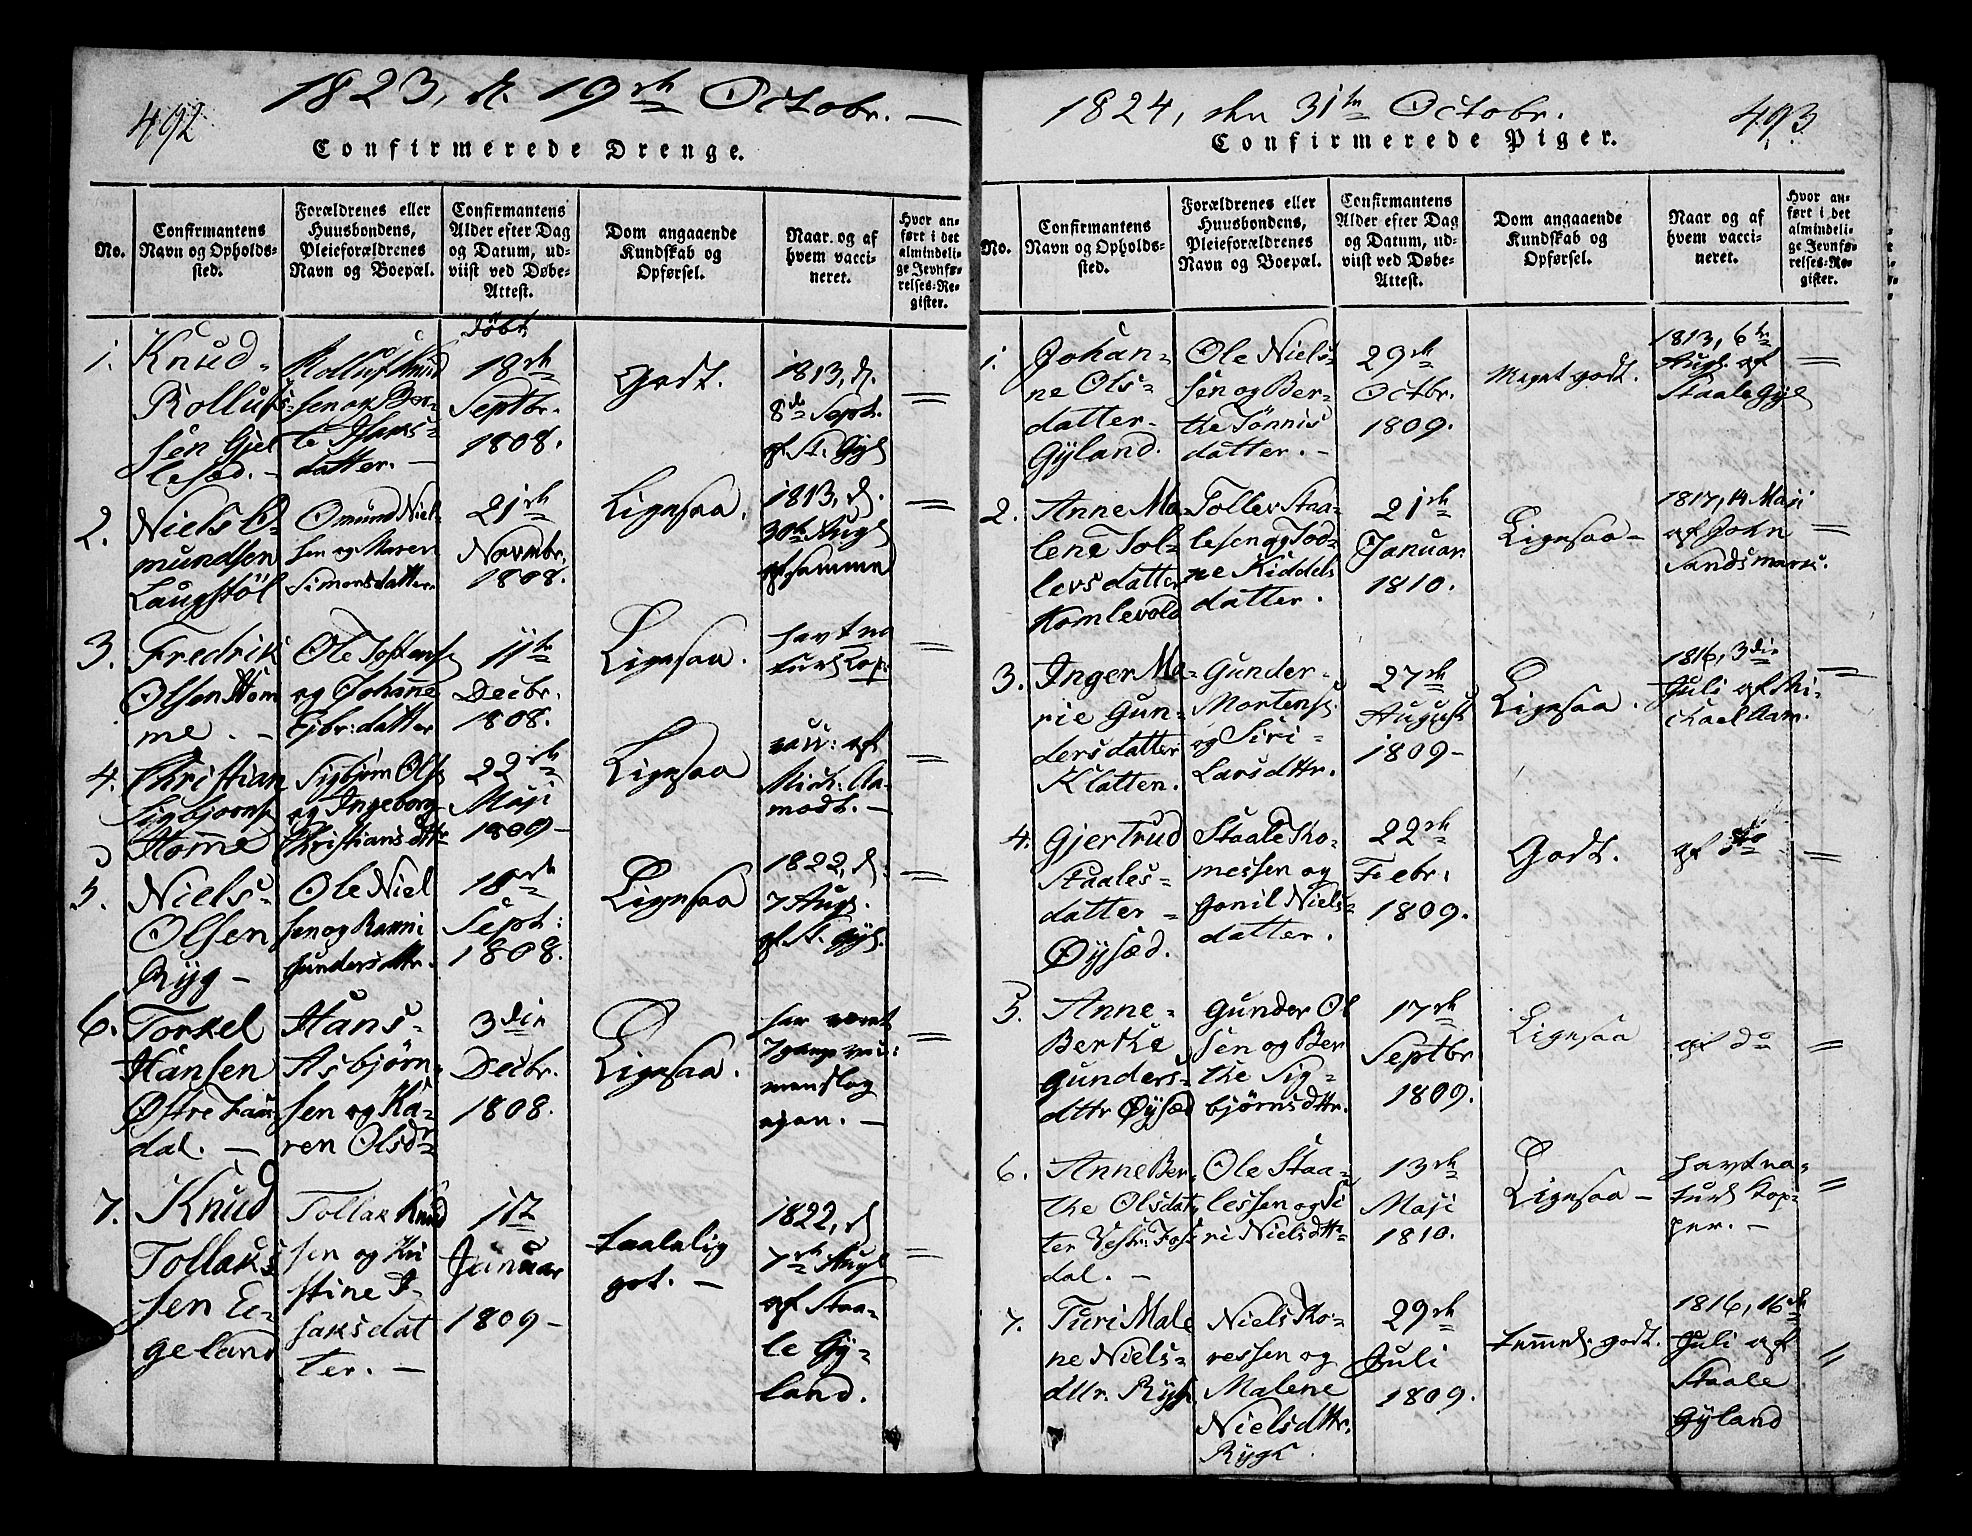 492
1823, d. 19de Octobr. —
Confirmerede Drenge.
No.
Confirmantens
Navn og Opholds-
sted.
Forældrenes eller
Huusbondens,
Pleieforældrenes
Navn og Boepæl.
Confirmantens
Alder efter Dag
og Datum, ud-
viist ved Døbe-
Attest.
Dom angaaende
Kundskab og
Opførsel.
Naar og af
hvem vacci-
neret.
Hvor an-
ført i det
almindeli-
ge Jevnfø-
relses-Re-
gister.
1.
Knud
Rollufs-
sen Gjel
lesed. -
Rolluf Knud
sen og Ber-
te Isaks-
datter. —
Döbt
18de
Septbr.
1808.
Godt.
1813, d.
8de Sept.
af St. Gyl
=
2.
Niels O-
mundsen
Laugstöl
Omund Niel-
sen og Maren
Simonsdatter
21de
Novmbr.
1808.
Ligesaa.
1813, d.
30te Augs
af samme
=
3.
Fredrik
Olsen Hom
me. -
Ole Tostens
og Johanne
Ejbr:datter
11te
Decbr.
1808.
Ligesaa.
havt na
turl. Kop:
=
4.
Christian
Sigbjörns
Homme
Sigbjörn Ols
og Ingeborg
Christiansdttr
22de
Maji
1809 -
Ligesaa
vacc: af
Mich: Aa-
modt. —
=
5.
Niels
Olsen
Ryg -
Ole Niel
sen og Ranni
Gundersdttr.
18de
Sept:
1808.
Ligesaa
1822, d:
7 Augs.
af St. Gyl.
=
6.
Torkel
Hansen
Østre Lau
dal. —
Hans
Asbjörn-
sen og Ka-
ren Olsdr
3die
Decbr.
1808.
Ligesaa.
har været
7 gange vac:
men slog
igjen. —
=
7.
Knud
Tollaks
sen Ee-
geland
Tollak Knud
sen og Kri
stine I-
saksdat
ter. —
17
Januar
1809 -
taalelig
got. —
1822, d
7de Augs
af Staa-
le Gy-
land.
=
1824, den 31te Octobr.
493
Confirmerede Piger.
No.
Confirmantens
Navn og Opholds-
sted.
Forældrenes eller
Huusbondens,
Pleieforældrenes
Navn og Boepæl.
Confirmantens
Alder efter Dag
og Datum, ud-
viist ved Døbe-
Attest.
Dom angaaende
Kundskab og
Opførsel.
Naar og af
hvem vacci-
neret.
Hvor an-
ført i det
almindeli-
ge Jevnfø-
relses-Re-
gister.
1.
Johan-
ne Ols-
datter
Gyland.
Ole Niels-
sen og Ber-
the Tönnis
datter. -
29de
Octbr.
1809.
Meget godt.
1813, 6te
Augs. af
Staale Gyl
=
2.
Anne Ma-
lene Tol-
levsdatter
Homlevold
Tollev Staa-
lesen og Tod-
ne Kiddels
datter.
21de
Januar
1810.
Ligesaa -
1817, 14 Maji
af John
Sandsmark.
=
3.
Inger Ma-
rie Gun-
dersdatter
Klatten.
Gunder
Mortens.
og Siri
Larsdttr.
27de
August
1809 -
Ligesaa.
1816, 3die
Juli af Mi-
chael Aam.
=
4.
Gjertrud
Staales-
datter
Øysæd.
Staale To-
messen og
Gonil Niels-
datter.
22de
Febr:
1809.
Godt.
af do
=
5.
Anne
Berthe
Gunders-
dttr Øysæd
Gunder Ol
sen og Ber
the Sig-
björnsdttr.
17de
Septbr
1809.
Ligesaa
af do
=
6.
Anne Ber-
the Olsdat
ter Vestr: Fos
dal. —
Ole Staa-
lessen og Si
ri Nielsdttr
13de
Maji
1810.
Ligesaa -
havt na-
turl Kop-
per. -
=
7.
Turi Male
ne Niels-
dttr. Rygh
Niels To-
ressen og
Malene
Nielsdttr.
Rygh.
29de
Juli
1809.
temmel: godt.
1816, 16de
Juli af
Staale
Gyland
=